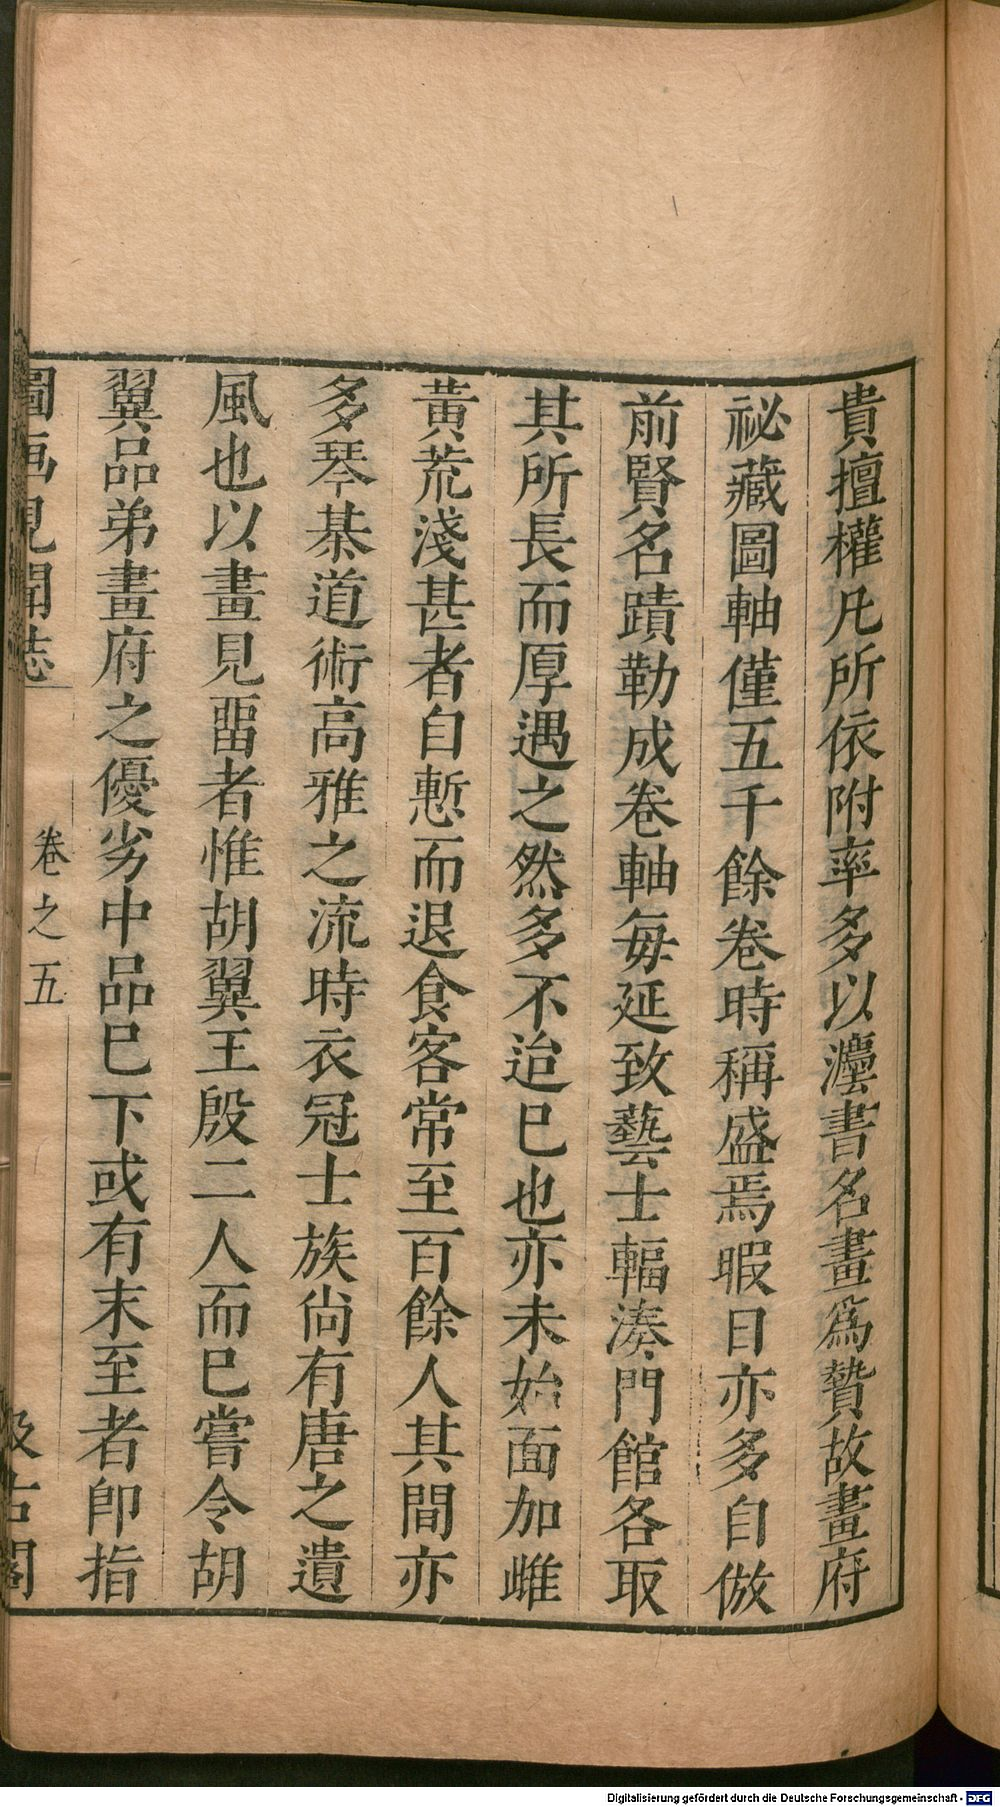 貴擅權凡所依附率多以灋書名畫爲贄故畫府
祕藏圖軸僅五千餘卷時稱盛焉暇日亦多自倣
前賢名蹟勒成卷軸每延致藝士輻湊門館各取
其所長而厚遇之然多不迨巳也亦未始面加雌
黃荒淺甚者自慙而退食客常至百餘人其間亦
多琴棊道術高雅之流時衣冠士族尚有唐之遺
風也以畫見畱者惟胡翼王殷二人而巳嘗令胡
翼品弟畫府之優劣中品巳下或有末至者卽指
圖画見聞誌 卷之五 汲古閣
Digitalisierung gefördert durch die Deutsche Forschungsgemeinschaft - DFG